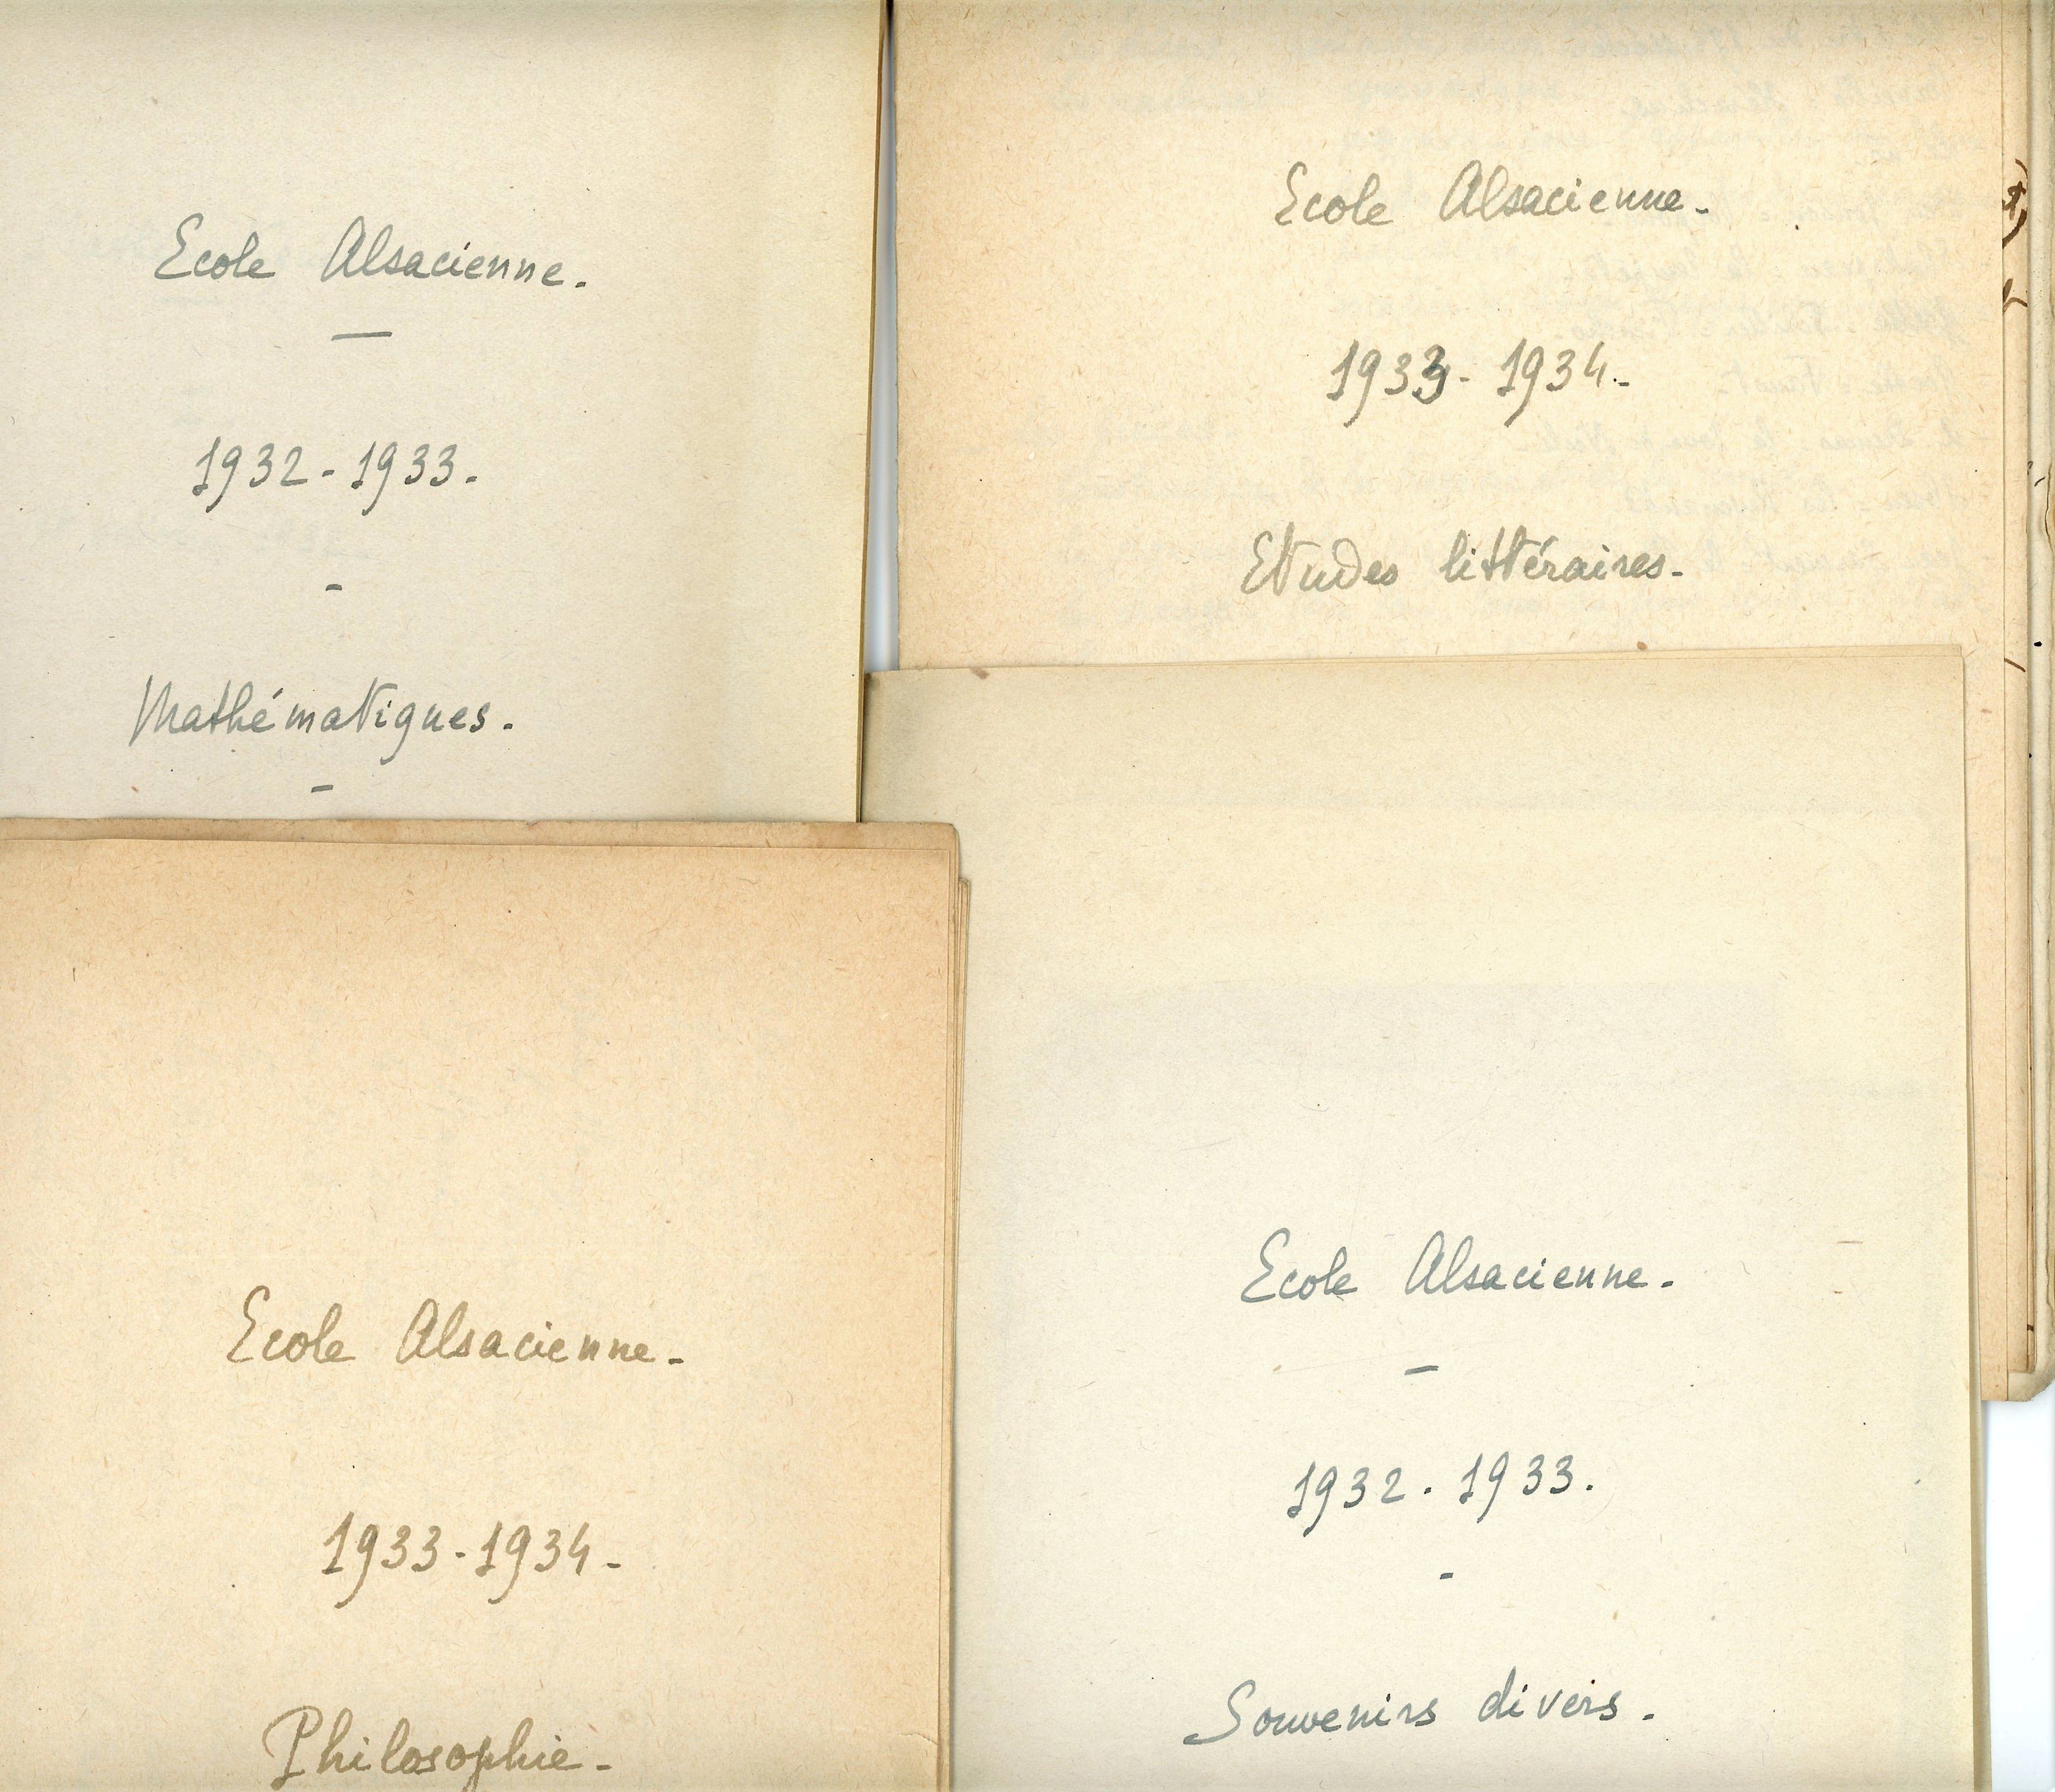 Ecole Alsacienne.
1932-1933.
Mathématiques.
Ecole Alsacienne.
1933-1934.
Etudes littéraires.
Ecole Alsacienne.
1933-1934.
Philosophie.
Ecole Alsacienne.
1932.1933.
Souvenirs divers.